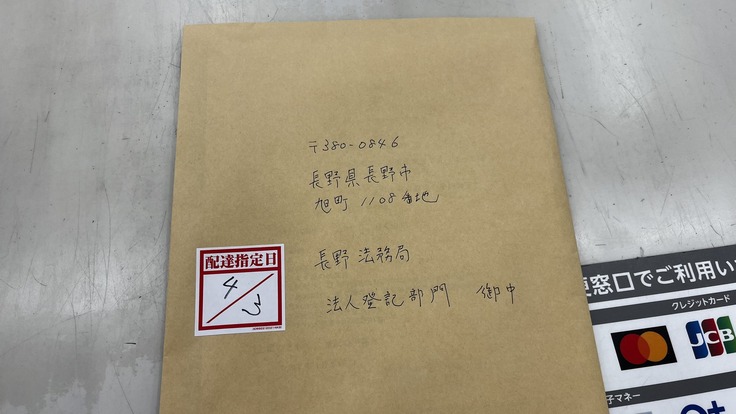 〒380-0846
長野県長野市
旭町 1108番地
長野法務局
法人登記部門 御中
配達指定日
4/3
更窓口でご利用い
クレジットカード
JCB
子マネー